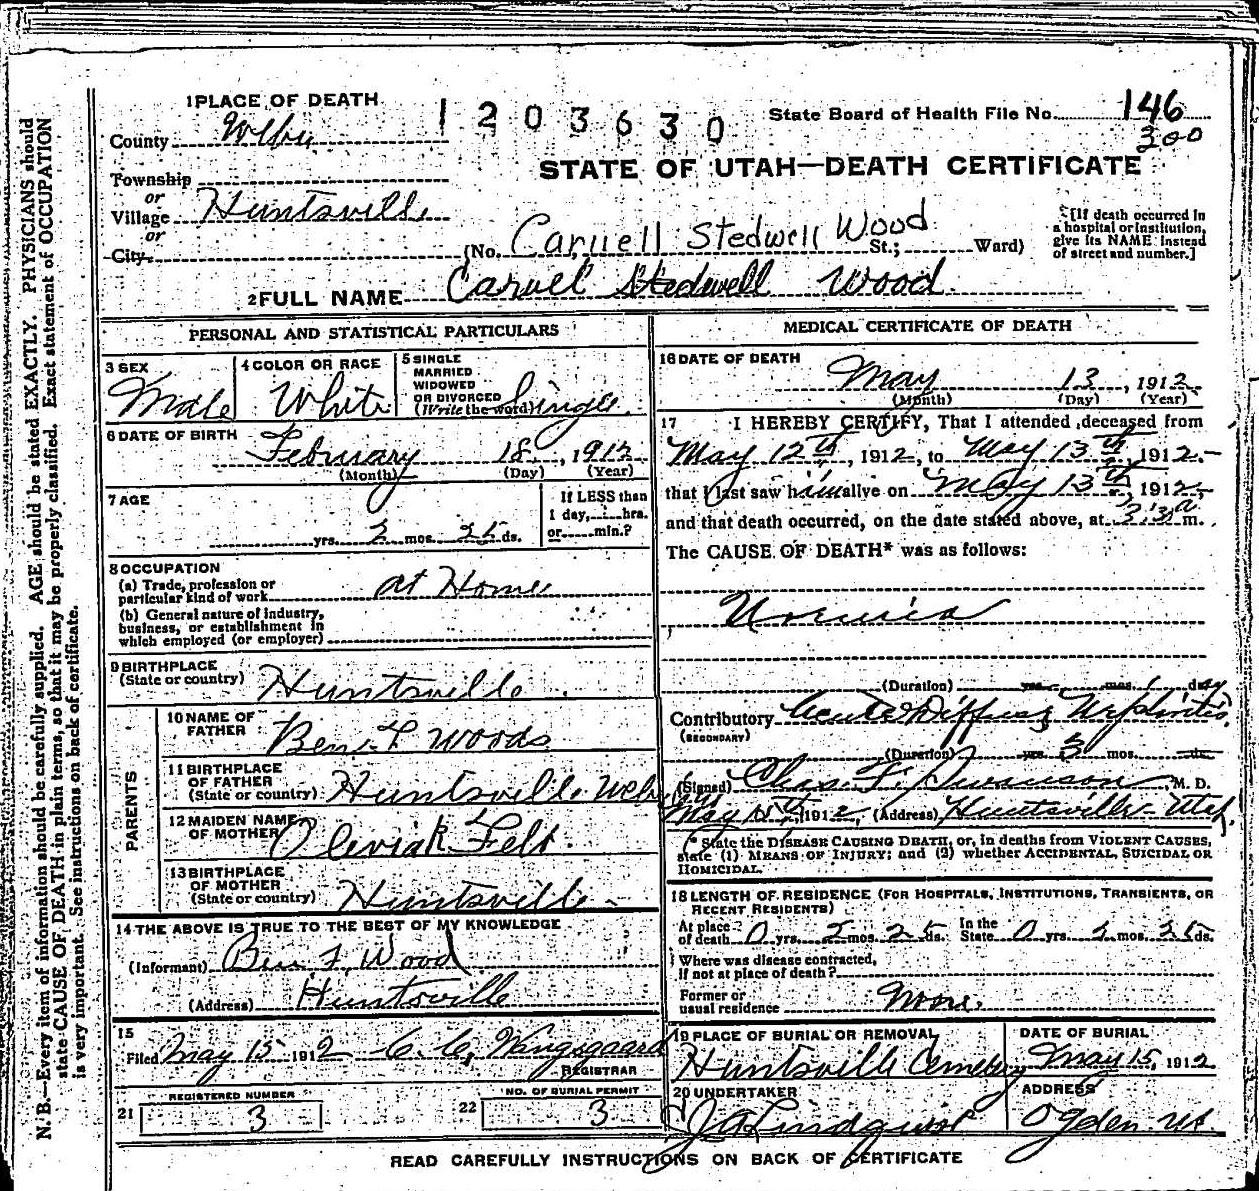 1 PLACE OF DEATH
1203630
State Board of Health File No. 146
300
County Weber
STATE OF UTAH—DEATH CERTIFICATE
Township
or
Village Huntsville
or
City
(No. Carvell Stedwell Wood St.; Ward)
[If death occurred in a hospital or institution, give its NAME instead of street and number.]
2 FULL NAME Carvel Stedwell Wood
PERSONAL AND STATISTICAL PARTICULARS
3 SEX Male
4 COLOR OR RACE White
5 SINGLE MARRIED WIDOWED OR DIVORCED (Write the word) Single
6 DATE OF BIRTH February 18, 1912
(Month) (Day) (Year)
7 AGE
yrs. 2 mos. 25 ds.
If LESS than 1 day, hrs. or min.?
8 OCCUPATION
(a) Trade, profession or particular kind of work at Home
(b) General nature of industry, business, or establishment in which employed (or employer)
9 BIRTHPLACE (State or country) Huntsville
PARENTS
10 NAME OF FATHER Ben F Woods
11 BIRTHPLACE OF FATHER (State or country) Huntsville Web
12 MAIDEN NAME OF MOTHER Felt
13 BIRTHPLACE OF MOTHER (State or country) Huntsville
14 THE ABOVE IS TRUE TO THE BEST OF MY KNOWLEDGE
(Informant) Ben F. Wood
(Address) Huntsville
15
Filed May 15 1912 C. C. Wangsgaard
REGISTRAR
21 REGISTERED NUMBER 3
22 NO. OF BURIAL PERMIT 3
MEDICAL CERTIFICATE OF DEATH
16 DATE OF DEATH
May 13, 1912
(Month) (Day) (Year)
17 I HEREBY CERTIFY, That I attended deceased from
May 12th, 1912, to May 13th, 1912.
that I last saw him alive on May 13th, 1912,
and that death occurred, on the date stated above, at 3:30 a m.
The CAUSE OF DEATH* was as follows:
Uremia
(Duration) yrs. mos. 1 day
Contributory Acute Diffuse Nephritis.
(SECONDARY)
(Duration) yrs. mos. ds.
(Signed) Chas. F. Swanson, M. D.
May 1912, (Address) Huntsville Utah.
* State the DISEASE CAUSING DEATH, or, in deaths from VIOLENT CAUSES, state (1) MEANS OF INJURY; and (2) whether ACCIDENTAL, SUICIDAL OR HOMICIDAL.
18 LENGTH OF RESIDENCE (FOR HOSPITALS, INSTITUTIONS, TRANSIENTS, OR RECENT RESIDENTS)
At place of death? 0 yrs. 2 mos. 25 ds. In the State 0 yrs. 2 mos. 25 ds.
Where was disease contracted, if not at place of death?
Former or usual residence None.
19 PLACE OF BURIAL OR REMOVAL Huntsville Cemetery
DATE OF BURIAL May 15, 1912
20 UNDERTAKER J A Lindquist
ADDRESS Ogden Ut.
READ CAREFULLY INSTRUCTIONS ON BACK OF CERTIFICATE
N. B.—Every item of information should be carefully supplied. AGE should be stated EXACTLY. PHYSICIANS should
state CAUSE OF DEATH in plain terms, so that it may be properly classified. Exact statement of OCCUPATION
is very important. See instructions on back of certificate.